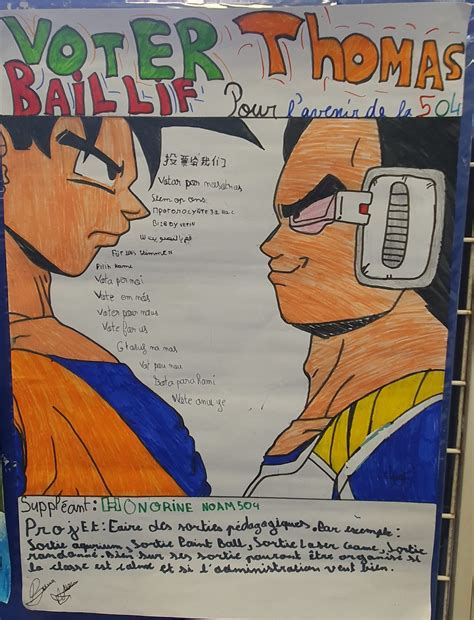 VOTER THOMAS
BAILLIF Pour l'avenir de la 504
投票给我们
Votar por nosotras
Stem op ons
Für uns stimmen
Pilih kami
Vota per noi
Vote em nós
Voter pour nous
Vote for us
Głosuj na nas
Suppléant: HONORINE NOAM 504
Projet: Faire des sorties pédagogiques, Par exemple:
Sortie aquarium, Sortie Paint Ball, Sortie Laser Game, Sortie
randonné. Bien sur ses sortie pouront être organisé si
la classe est calme et si l'administration veut bien.